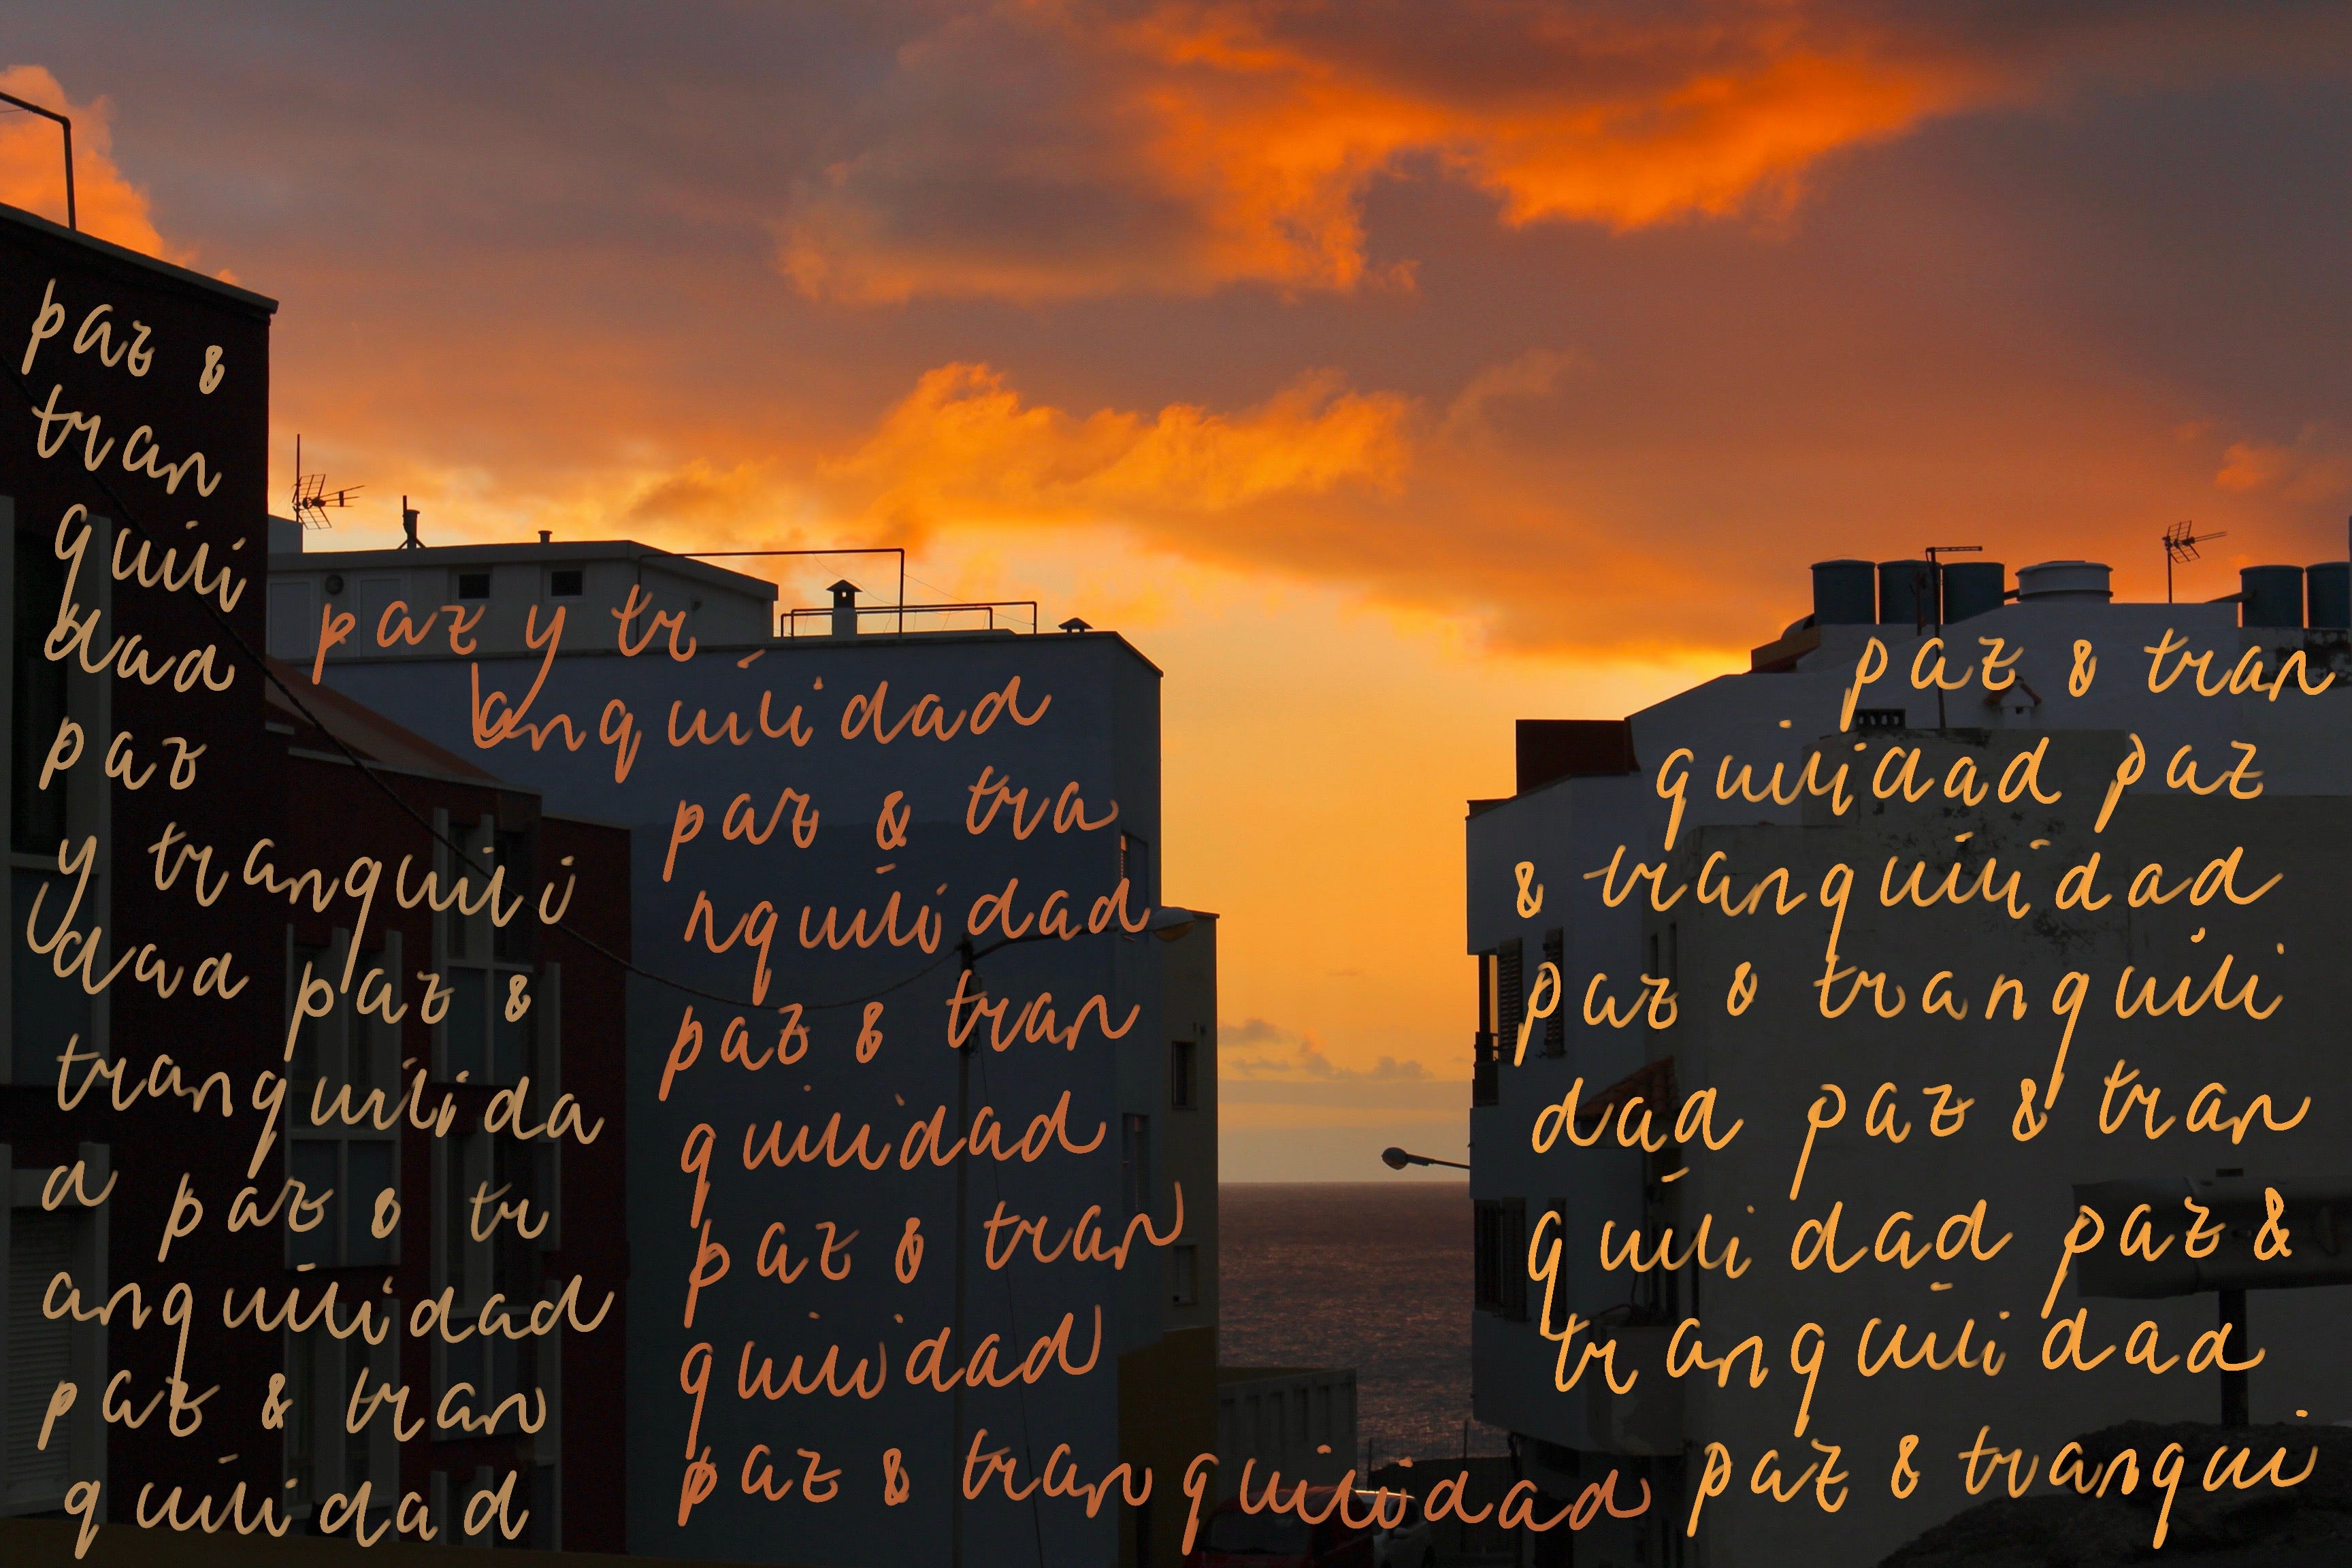 paz &
tran
quili
dad
paz
y tranquili
dad paz &
tranquilida
d paz & tr
anquilidad
paz & tran
quilidad
paz y tr
anquilidad
paz & tra
nquilidad
paz & tran
quilidad
paz & tran
quilidad
paz & tranquilidad
paz & tran
quilidad paz
& tranquilidad
paz & tranquili
dad paz & tran
quilidad paz &
tranquilidad
paz & tranqui